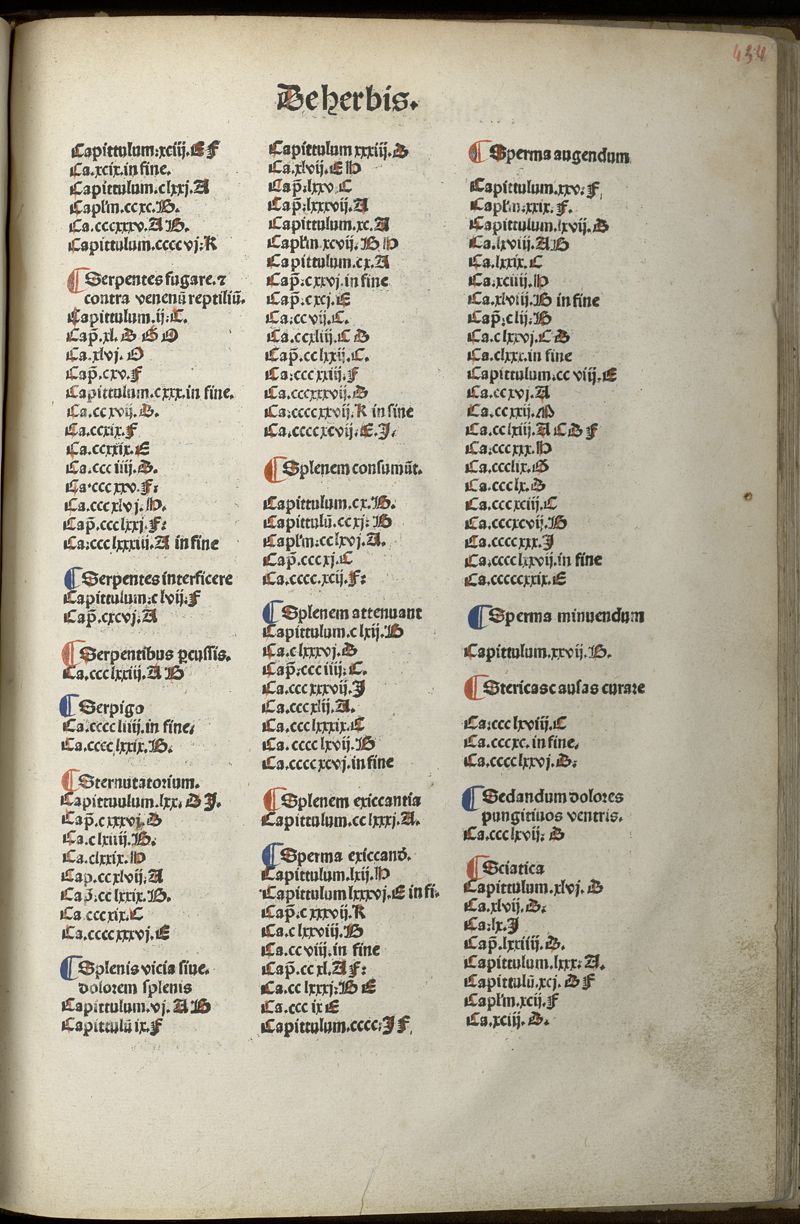 434
De herbis.
Capittulum.xciij.E f
Ca.xcix.in fine.
Capittulum.clxxj.A
Capl'm.ccxc.B.
Ca.cccxxxv.A B.
Capittulum.ccccvj.K
¶Serpentes fugare.⁊
contra venenū reptiliū.
Capittulum.ij.C.
Cap̄.xl.D G O
Ca.xlvj.O
Cap̄.cxv.f
Capittulum.cxxx.in fine.
Ca.ccxvij.D.
Ca.ccxix.f
Ca.ccxxix.E
Ca.ccc iiij.D.
Ca.cccxxv.f.
Ca.cccxlvj.H.
Cap̄.ccclxxj.f.
Ca.ccclxxxiij.A in fine
¶Serpentes interficere
Capittulum.clvij.f
Cap̄.cxcvj.A
¶Serpentibus pcussis.
Ca.ccclxxiij.A B
¶Serpigo
Ca.cccc liiij.in fine.
Ca.cccc lxxix.B.
¶Sternutatorium.
Capittuulum.lxx.D J.
Cap̄.cxxxvj.D
Ca.c lxiiij.B.
Ca.clxxix.H
Cap.ccxlvij.A
Cap̄.cc lxxix.B.
Ca cccxix.C
Ca.ccccxxxvj.E
¶Splenis vicia siue.
dolorem splenis
Capittulum.vj.A B
Capittulū ix.f
Capittulum xxxiij.D
Ca.xlvij.E H
Cap̄.lxxv C
Cap̄.lxxxvij.A
Capittulum.xc.A
Capl'm xcvij.B H
Capittulum.cx.A
Cap̄.cxxvj.in fine
Cap̄.cxcj.E
Ca.cc vij.C.
Ca.ccxliij.C D
Cap̄.cc lxxij.C.
Ca.cccxxiij.f
Ca.cccxxxvij.D
Ca.ccccxxvij.K in fine
Ca.ccccxcvij.E.J.
¶Splenem consumūt.
Capittulum.cx.B.
Capittulū.ccxj.B
Capl'm.cc lxvj.A.
Cap̄.cccxj.C
Ca.cccc.xcij.f.
¶Splenem attenuant
Capittulum.c lxij.B
Ca.c lxxxvj.D
Cap̄.ccc iiij.C.
Ca.cccxxxvij.J
Ca.cccxlij.A.
Ca.ccc lxxxix.C
Ca.cccc lxvij.B
Ca.ccccxcvj.in fine
¶Splenem exiccantia
Capittulum.cc lxxxj.A.
¶Sperma exiccand̄.
Capittulum.lxij.H
Capittulum lxxxvj.E in fi.
Cap̄.cxxxvij.K
Ca.c lxxviij.B
Ca.cc viij.in fine
Cap̄.cc xl.A f.
Ca.cc lxxxj.B E
Ca.ccc ix E
Capittulum.cccc.J f
¶Sperma augendum
Capittulum.xxv.f
Capl'm.xxix.f.
Capittulum.lxvij.D
Ca.lxviij.A B
Ca.lxxix.C
Ca.xciiij.H
Ca.xlviij.B in fine
Cap̄.clij.B
Ca.c lxxvj.C D
Ca.clxxx.in fine
Capittulum.cc viij.E
Ca.ccxvj.A
Ca.ccxxij.D
Ca.cc lxiij.A C D f
Ca.cccxxx.H
Ca.ccclix.G
Ca.ccclx.D
Ca.cccxciij.C
Ca.cccxcvij.B
Ca.ccccxxx.J
Ca.cccc lxxvij.in fine
Ca.cccccxxix.E
¶Sperma minuendum
Capittulum.xxvij.B.
¶Stericas causas curare
Ca.ccc lxviij.C
Ca.cccxc.in fine.
Ca.cccc lxxvj.D.
¶Sedandum dolores
pungitiuos ventris.
Ca.ccc lxvij. D
¶Sciatica
Capittulum.xlvj.D
Ca.xlvij.D.
Ca.lx.J
Cap̄.lxxiiij.D.
Capittulum.lxxx.A.
Capittulū.xcj.D f
Capl'm.xcij.f
Ca.xciij.D.